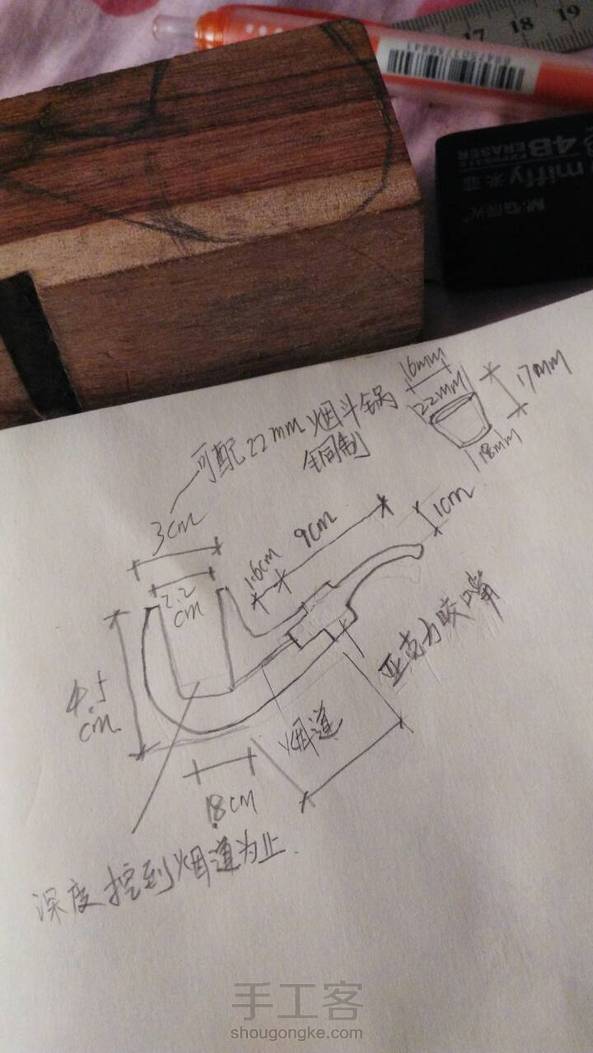 17 18 19
4B
ERASER
miffy 米菲
M&G 晨光
16mm
22mm
17mm
18mm
可配22mm烟斗锅
铜制
3cm
2.2
cm
1.6cm
9cm
1cm
4.5
cm
亚克力咬嘴
烟道
1.8cm
深度挖到烟道为止.
手工客
shougongke.com